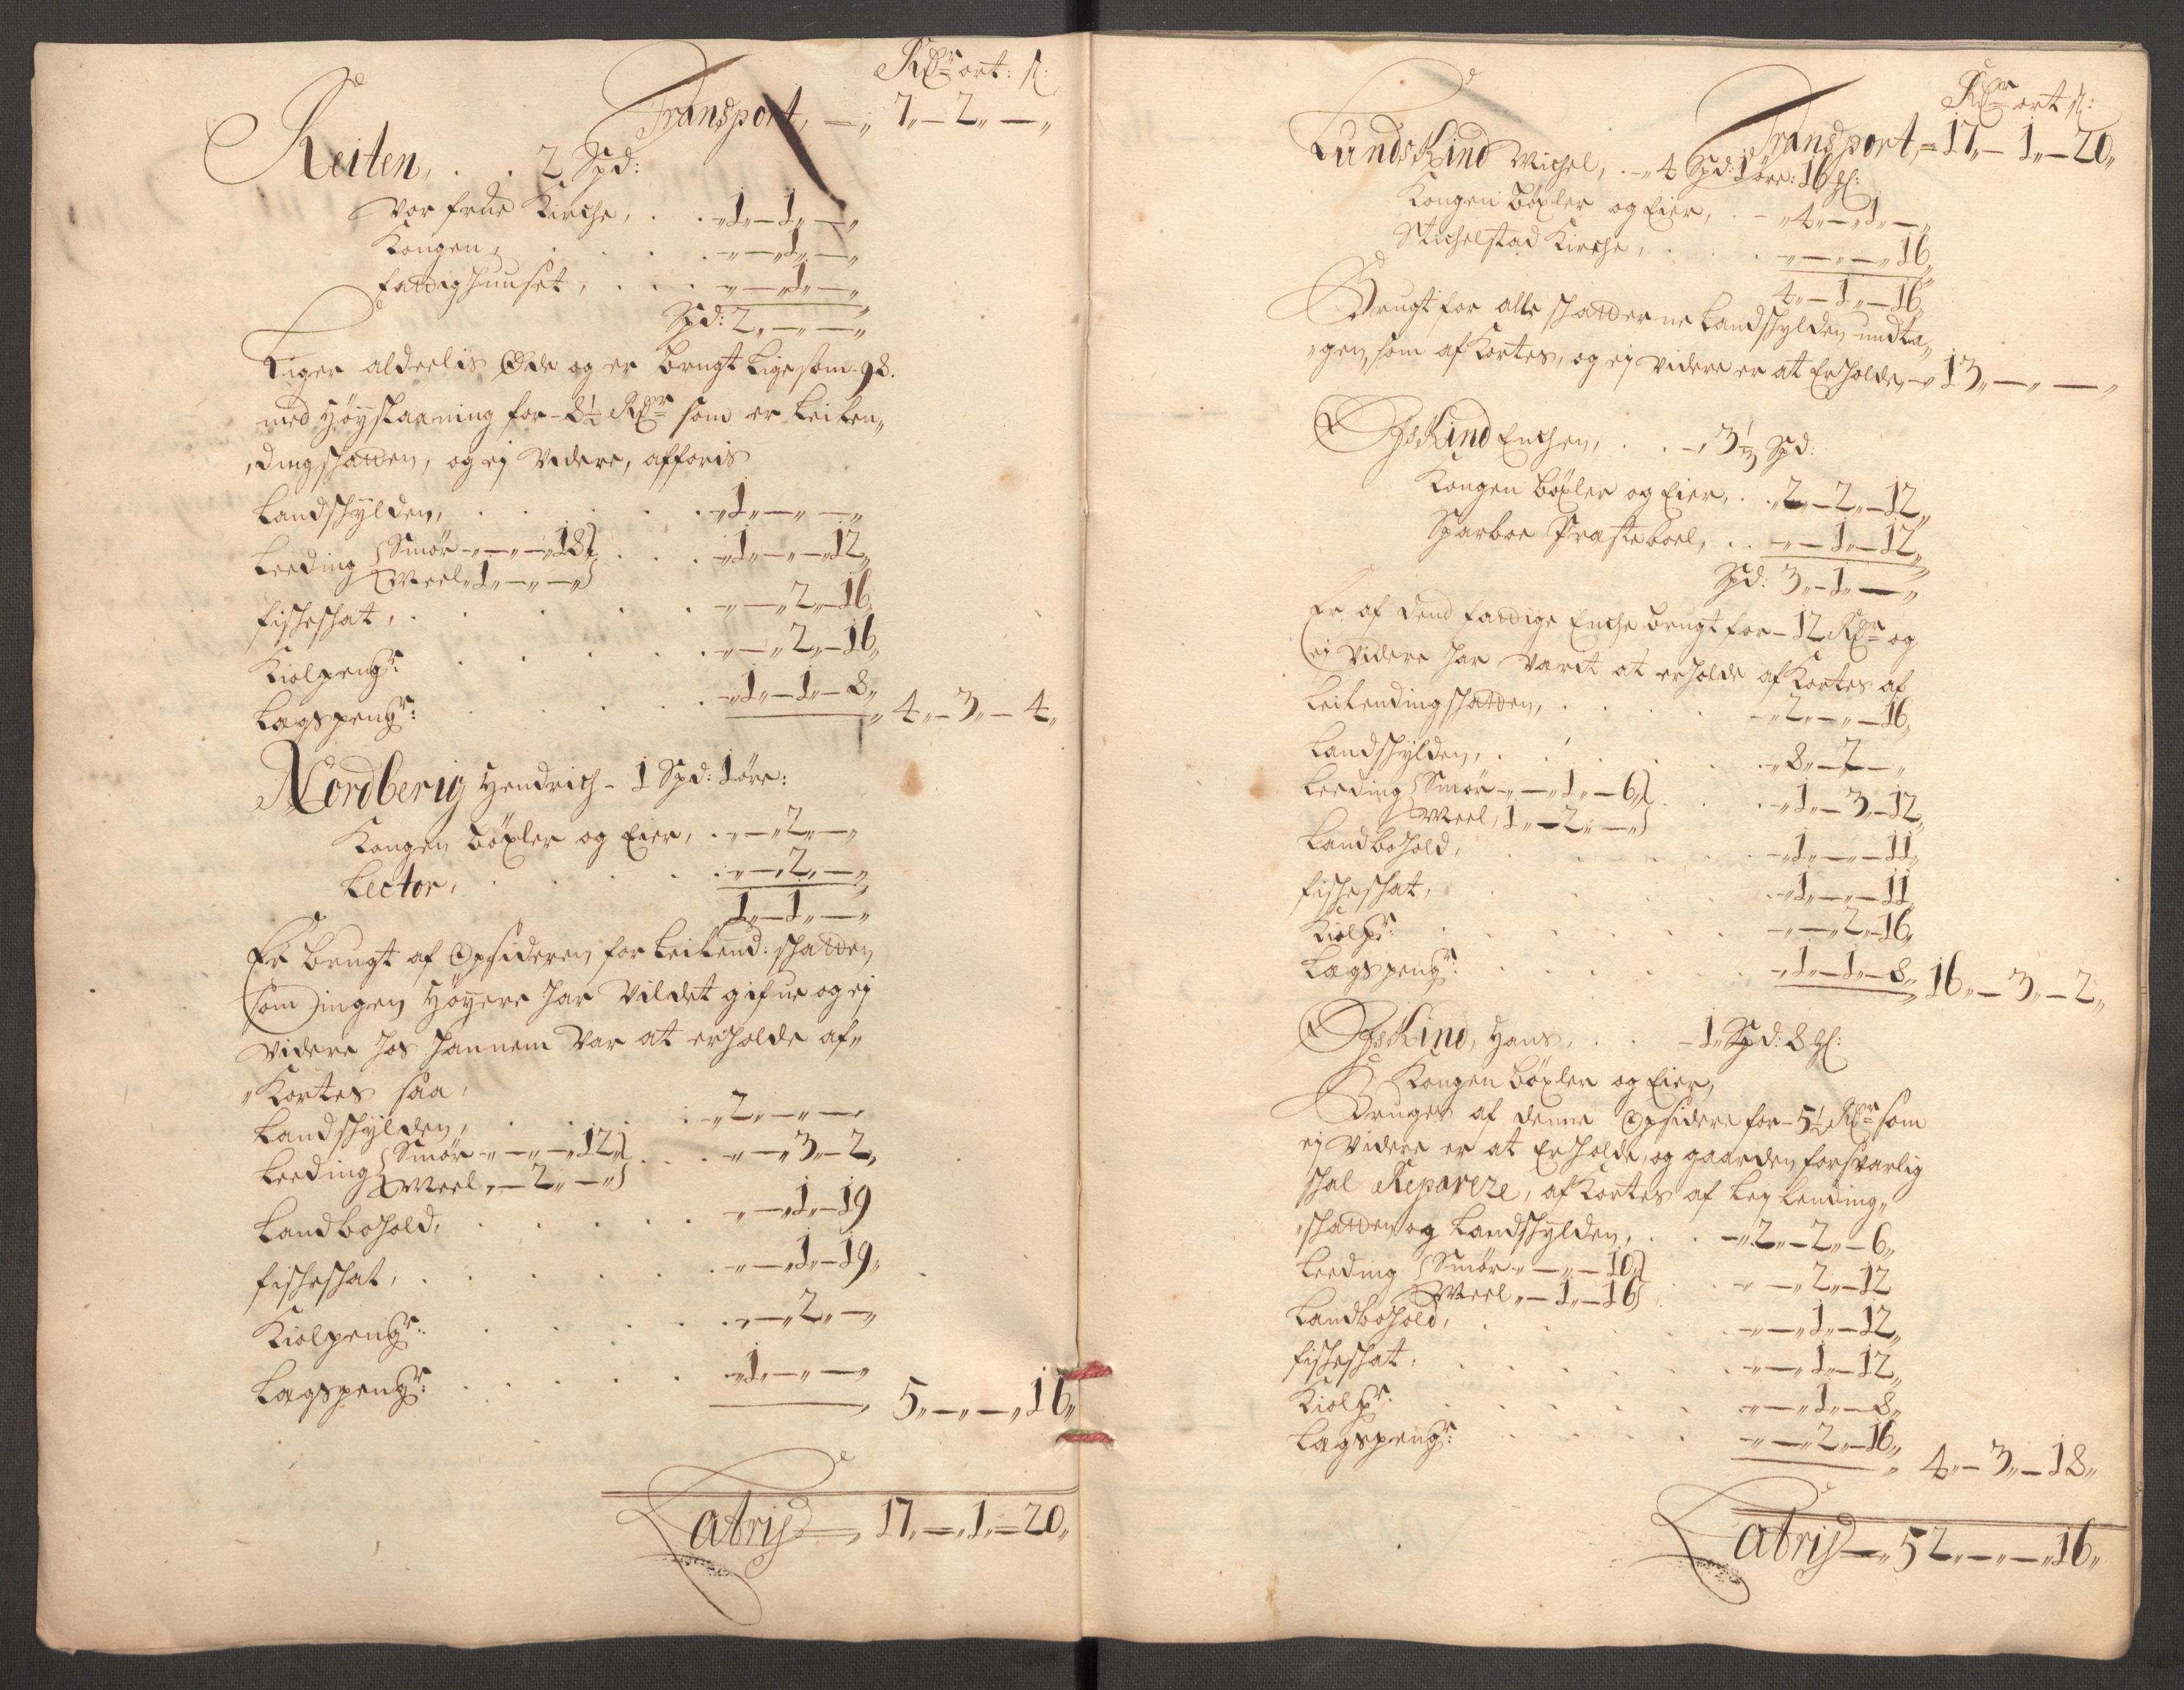 Rdr ort: s:
Transport, — „ 7„ — 2„ — „
Reiten, . . 2 Spd:
Vor frue Kirche, . . „1„ — 1„ — „
Kongen, . . . . „ — „1„ — „
fattighuuset, . . . „ — „1„ — „
Spd: 2„ — „ — „
Liger aldeelis Øde og er brugt lige som 98.
med Høyslaaning for 8½ Rdr som er Leilen„
„dingschatten, og ej Videre, afforis
Landschylden, . . . . „1„ — „ — „
Leeding { Smør „ — „ — „18„ } . . . „1„ — „ — 12„
{ Meel „1„ — „ — „ }
fischeschat, . . . . . „ — „2„ — 16„
Kiolpengr: . . . . . „ — „2„ — 16„
Lagspengr: . . . . . „1„ — 1„ — 8„ „ 4„ — 3„ — 4„
Nordberig Hendrich — 1 Spd: 1 øre:
Kongen bøxler og Eier, . „ — „2„ — „
Lector, . . . . „ — „2„ — „
1„ — 1„ — „
Er brugt af Opsideren for Leilend: schatten
som ingen Høyere har Vildet gifue og ej
Videre hos hannem Var at erholde af„
„Kortes saa,
Landschylden, . . . . „2„ — „ — „
Leeding { Smør „ — „ — „12„ } . . . „ — „3„ — 2„
{ Meel „ — 2„ — „ }
Landbohold, . . . . . „ — „1„ — 19
fischeschat, . . . . . „ — „1„ — 19„
Kiolpengr: . . . . . „ — „2„ — „
Lagspengr: . . . . . „1„ — „ — „ 5„ — „ — „16„
Latris — „ 17„ — „1„ — 20„
Rdr ort s:
Transport, — 17„ — 1„ — 20„
LundsKind Michel, . — „ 4 Spd: 1 øre: 16 ℔:
Kongen Bøxler og Eier, . — „4„ — „1„ — „
Stichelstad Kirche, . . . „ — „ — „ 16„
4„ — 1„ — 16„
Brugt for alle schatterne Landschylden undta„
„gen, som af Kortes, og ej videre er at Erholde, — „ 13„ — „ — „
OpsKind Enchen, . . — „ 3⅓ Spd:
Kongen bøxler og Eier, . . „2„ — 2„ — 12„
Sparboe Præsteboel, . . „ — „1„ — 12„
Spd: 3„ — 1„ — „
Er af dend fattige Enche brugt for — 12 Rdr og
ej Videre har Varet at erholde af Kortes af
Leilendingschatten, . . . „2„ — „ — 16„
Landschylden, . . . . „8„ — 2„ — „
Leeding { Smør „ — „1„ — 6„ } . . . „1„ — 3„ — 12„
{ Meel, 1„ — 2„ — „ }
Landbohold, . . . . „1„ — „ — 11„
fischeschat, . . . . „1„ — „ — 11„
Kiolpr: . . . . . „ — „2„ — 16„
Lagspengr: . . . . . „1„ — 1„ — 8„ 16„ — 3„ — 2„
OpsKind, Hans, . . — 1„ Spd: 8 ℔:
Kongen bøxler og Eier,
Bruges af denne Opsidere for — 5½ Rdr som
ej Videre er at Erholde, og gaarden forsvarlig
schal Reparere, af Kortes af Leylending„
„schatten og Landschylden, . . „2„ — 2„ — 6„
Leeding { Smør „ — „ — 10„ } . . „ — „2„ — 12
{ Meel „ — 1„ — 16 }
Landbohold, . . . . „ — „1„ — 12„
fischeschat, . . . . „ — „1„ — 12„
Kiolpr: . . . . . „ — „1„ — 8„
Lagspengr: . . . . . „ — „2„ — 16„ „ 4„ — 3„ — 18„
Latris — „ 52„ — „ — „16„